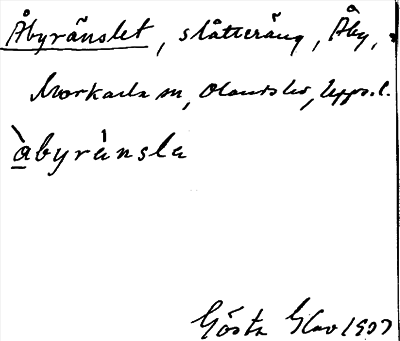 Åbyränslet, slåtteräng, Åby,
Morkarla sn, Olands hd, Upps. l.
àbyrànsla
Gösta Glav 1907